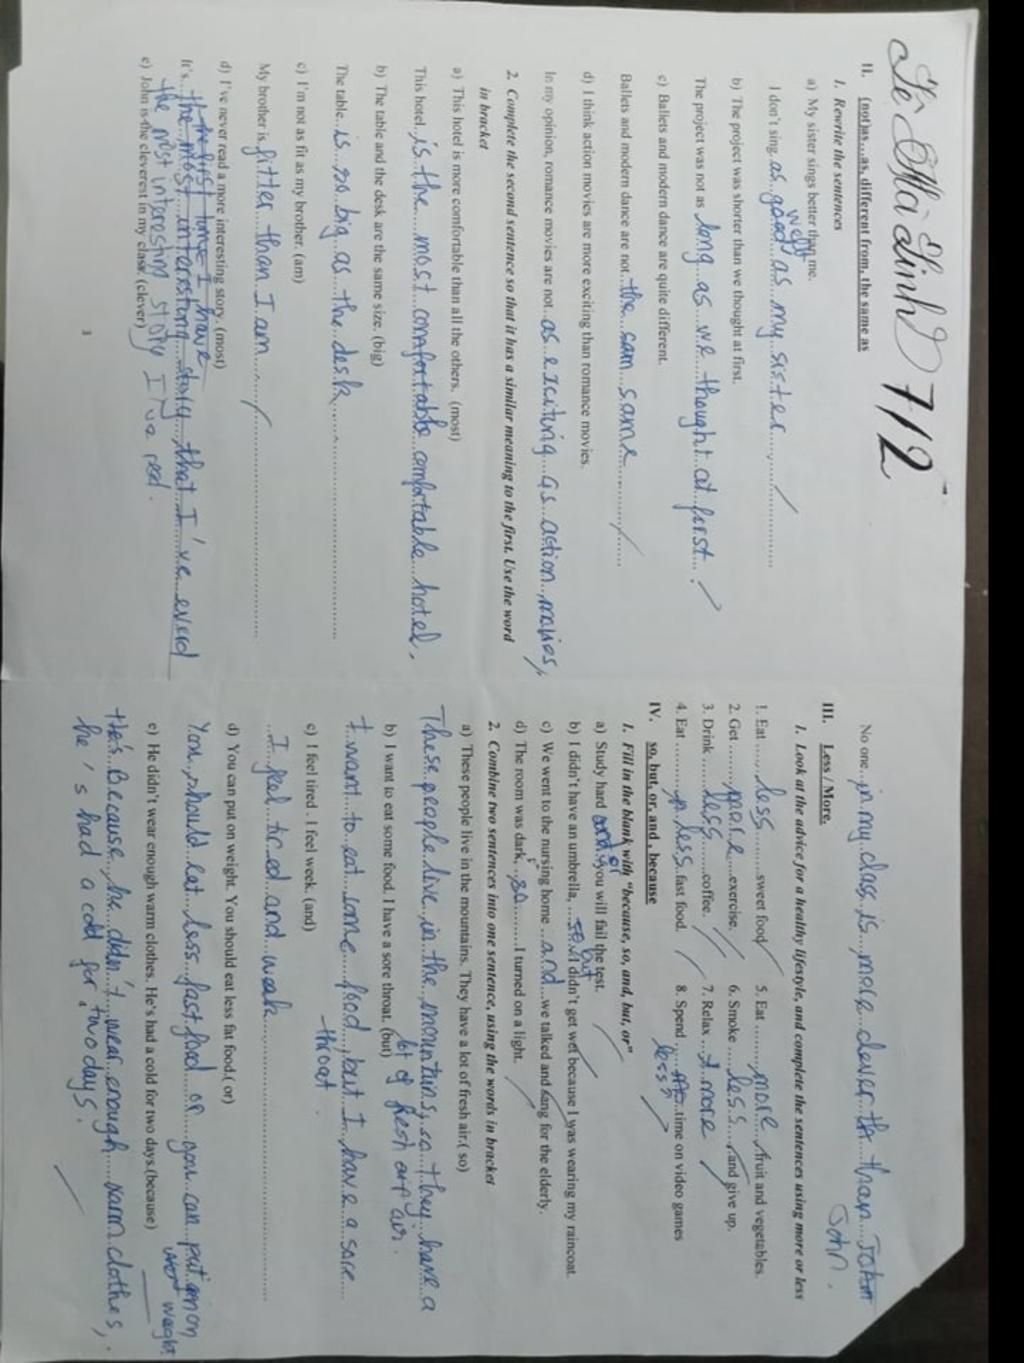 Lê Mai Linh 7/2
II. (not)as...as, different from, the same as
1. Rewrite the sentences
a) My sister sings better than me.
I don't sing as good well as my sister
b) The project was shorter than we thought at first.
The project was not as long as we thought at first.
c) Ballets and modern dance are quite different.
Ballets and modern dance are not the sam same
d) I think action movies are more exciting than romance movies.
In my opinion, romance movies are not as exciting as action movies,
2. Complete the second sentence so that it has a similar meaning to the first. Use the word
in bracket
a) This hotel is more comfortable than all the others. (most)
This hotel is the most comfortable comfortable hotel.
b) The table and the desk are the same size. (big)
The table is so big as the desk
c) I'm not as fit as my brother. (am)
My brother is fitter than I am
d) I've never read a more interesting story. (most)
the first time I have
It's the most interesting story that I've
the most interesting story I've red.
e) John is the cleverest in my class. (clever)
3
No one in my class is more clever th than John
John.
III. Less / More.
1. Look at the advice for a healthy lifestyle, and complete the sentences using more or less
1. Eat less sweet food
2. Get more exercise.
3. Drink less coffee.
4. Eat less fast food.
5. Eat more fruit and vegetables.
6. Smoke less and give up.
7. Relax more
8. Spend time on video games
less
IV. so, but, or, and , because
1. Fill in the blank with "because, so, and, but, or"
a) Study hard and or you will fail the test.
b) I didn't have an umbrella, so but I didn't get wet because I was wearing my raincoat.
c) We went to the nursing home and we talked and sang for the elderly.
d) The room was dark, so I turned on a light.
2. Combine two sentences into one sentence, using the words in bracket
a) These people live in the mountains. They have a lot of fresh air.( so)
These people live in the mountains so they have a
lot of fresh air air.
b) I want to eat some food. I have a sore throat. (but)
I want to eat some food, but I have a sore
throat.
c) I feel tired . I feel week. (and)
I feel tired and weak
d) You can put on weight. You should eat less fat food.( or)
You should eat less fast food or you can put on
weight
e) He didn't wear enough warm clothes. He's had a cold for two days.(because)
He's Because he didn't wear enough warm clothes,
he's had a cold for two days.